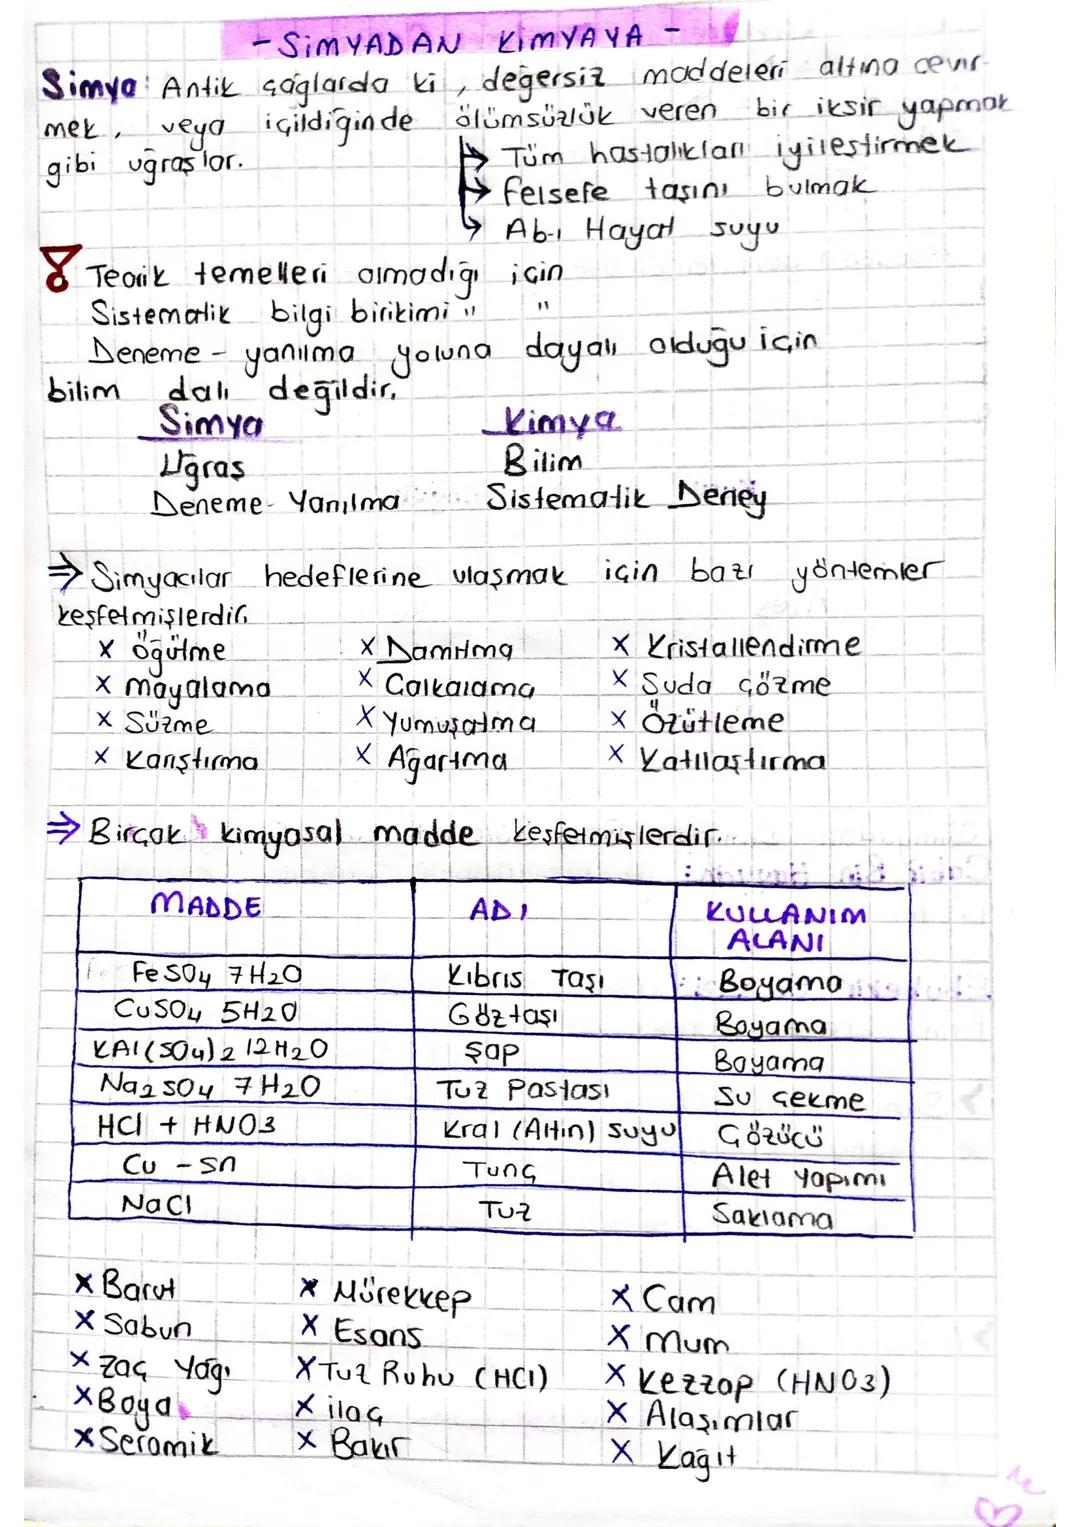 - SİMYADAN KİMYAYA -
Simya: Antik çağlarda ki, değersiz maddeleri altına çevir-
mek, veya içildiğinde ölümsüzlük veren bir iksir yapmak
gibi uğraşlar.
→ Tüm hastalıkları iyileştirmek
→ Felsefe taşını bulmak
→ Ab-ı Hayat suyu
Teorik temelleri olmadığı için
Sistematik bilgi birikimi " "
Deneme - yanılma yoluna dayalı olduğu için
bilim dalı değildir.
Simya Kimya
Uğraş Bilim
Deneme - Yanılma Sistematik Deney
⇒ Simyacılar hedeflerine ulaşmak için bazı yöntemler
keşfetmişlerdir.
x Öğütme x Damıtma x Kristallendirme
x Mayalama x Çalkalama x Suda çözme
x Süzme x Yumuşatma x Özütleme
x Karıştırma x Ağartma x Katılaştırma
⇒ Birçok kimyasal madde keşfetmişlerdir.
MADDE ADI KULLANIM
ALANI
FeSO4 7H2O Kıbrıs Taşı Boyama
CuSO4 5H2O Göztaşı Boyama
KAl(SO4)2 12H2O Şap Boyama
Na2SO4 7H2O Tuz Pastası Su çekme
HCl + HNO3 Kral (Altın) suyu Çözücü
Cu - Sn Tunç Alet Yapımı
NaCl Tuz Saklama
x Barut x Mürekkep x Cam
x Sabun x Esans x Mum
x Zaç Yağı x Tuz Ruhu (HCl) x Kezzap (HNO3)
x Boya x ilaç x Alaşımlar
x Seramik x Bakır x Kağıt